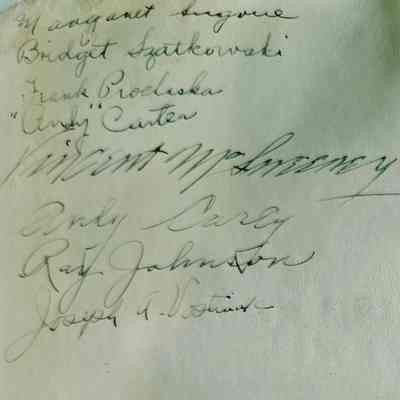 Margaret
Bridget Szatkowski
Frank Prochaska
"Andy" Carter
Vincent McSweeney
Andy Carey
Ray Johnson
Joseph A.